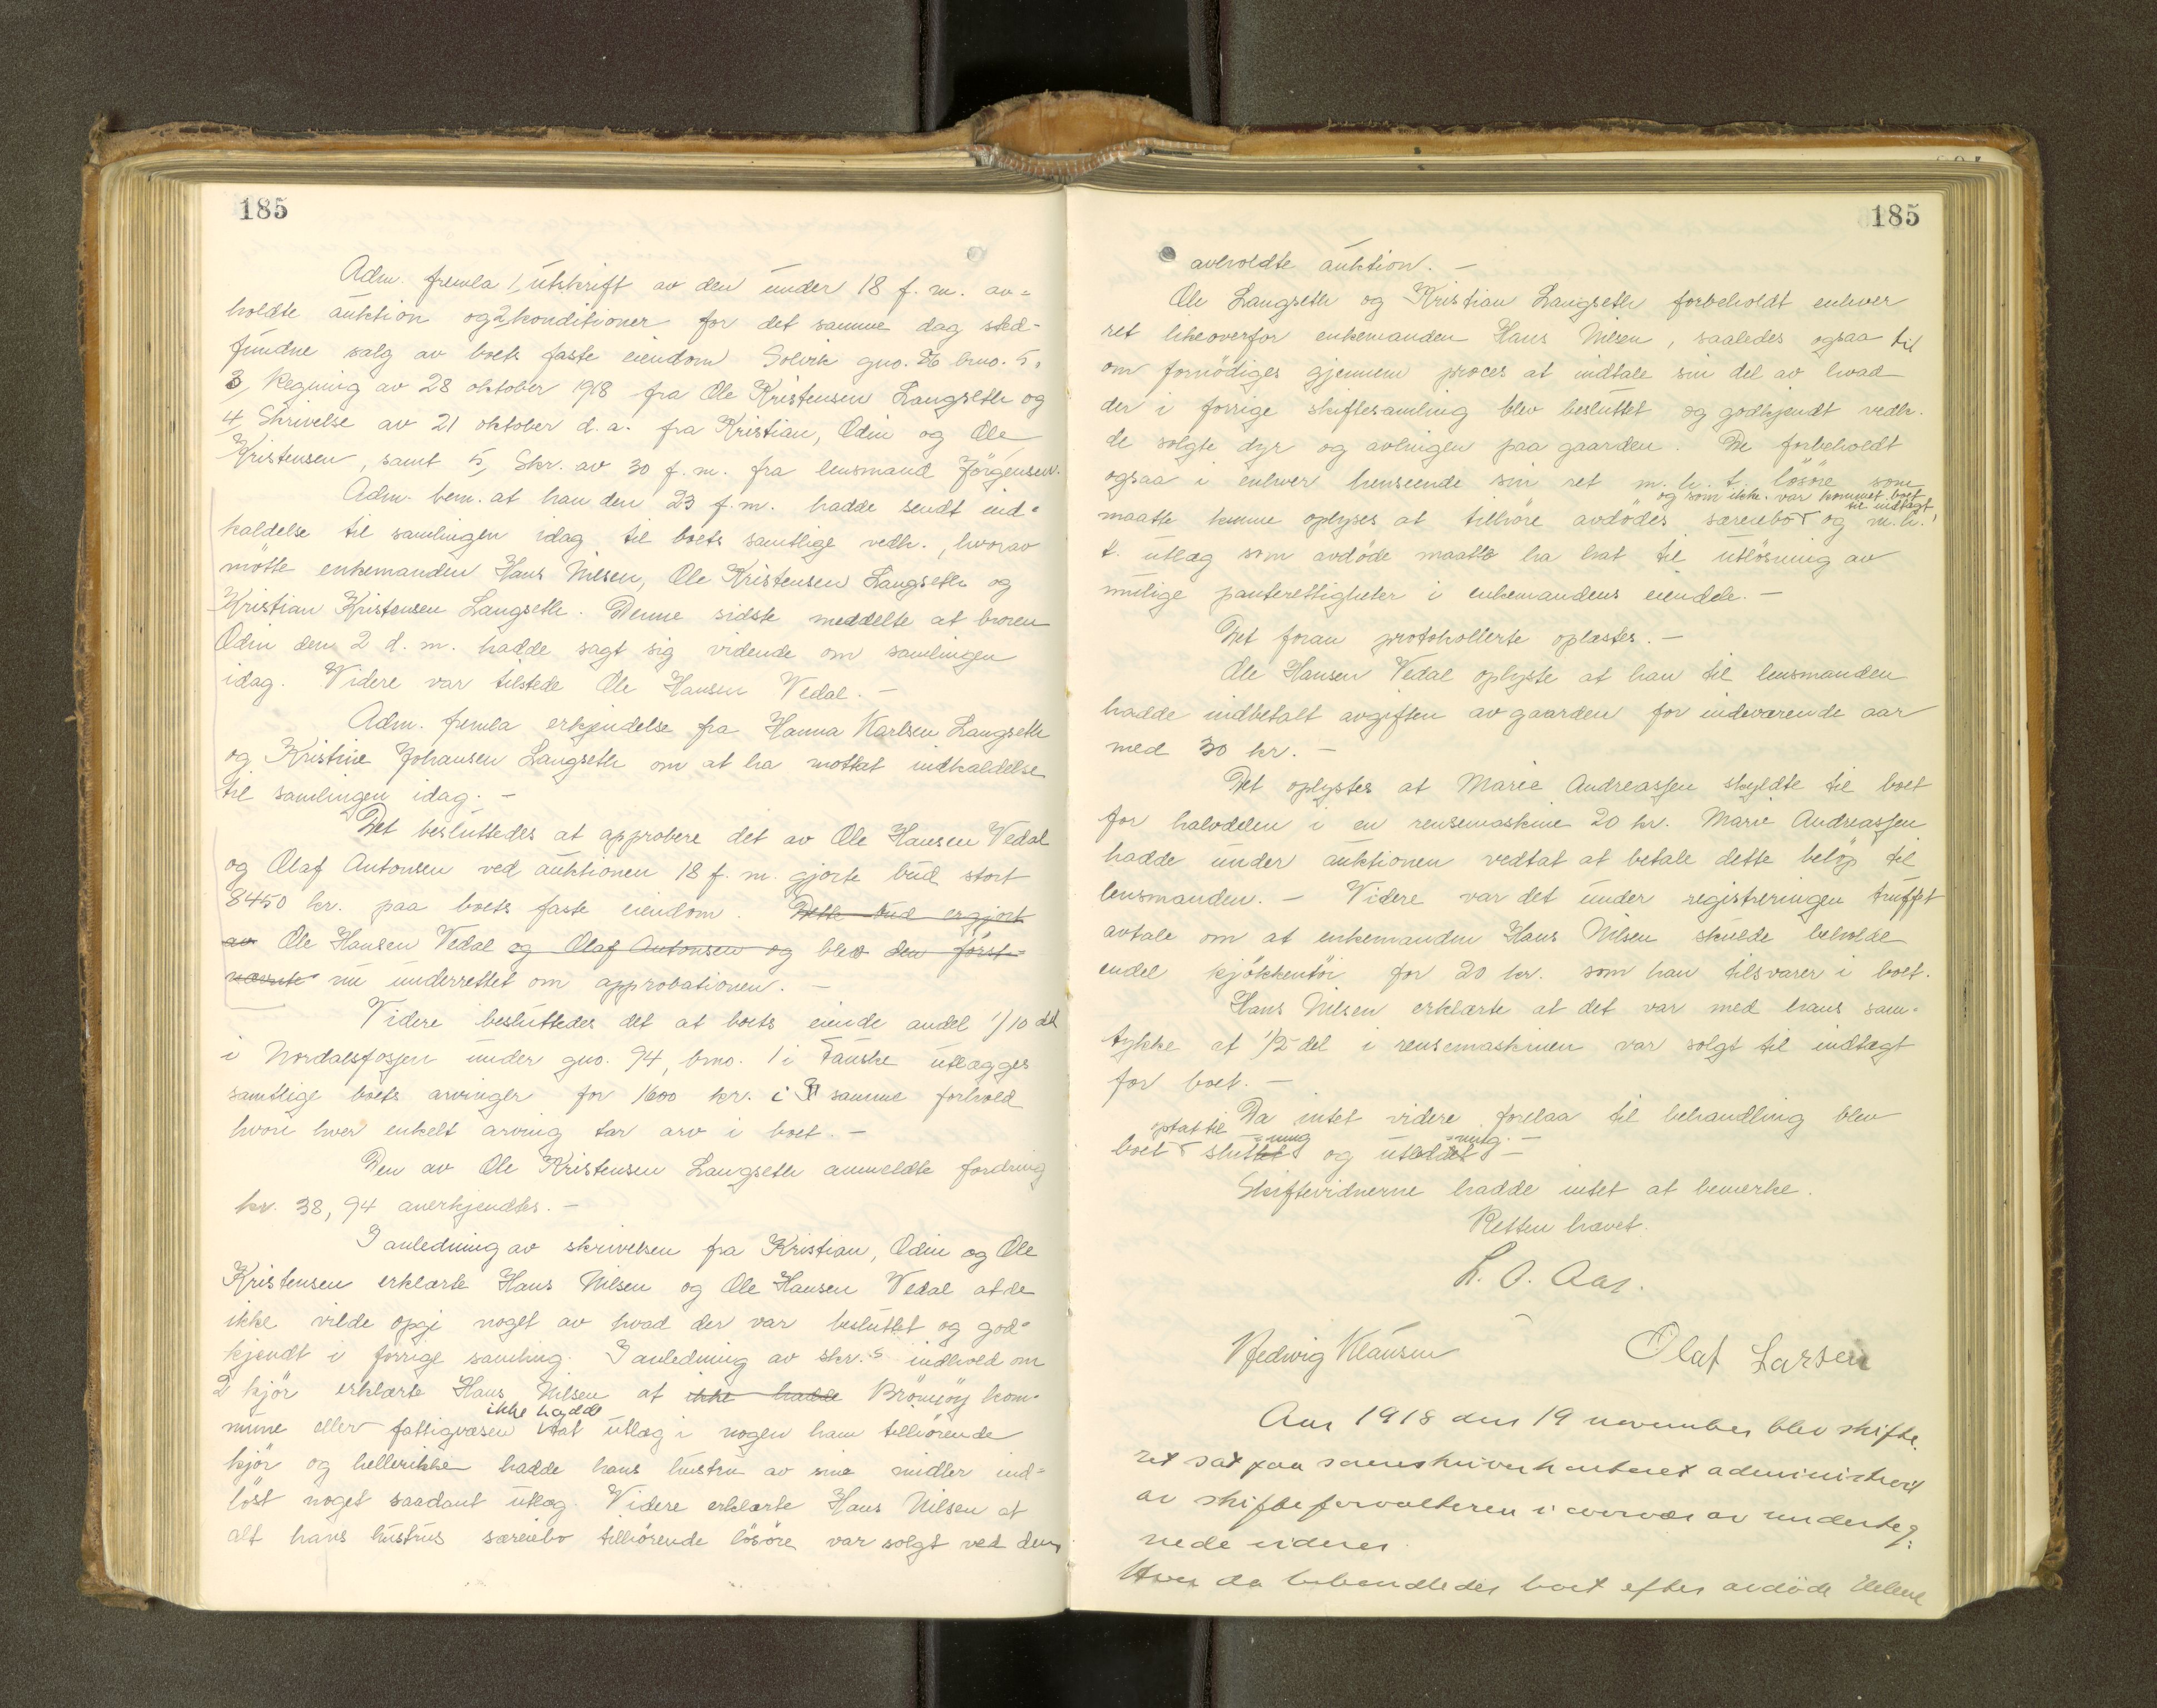 185
Adm. fremla 1/ utskrift av den under 18 f. m. av=
holdte auktion og 2/ konditioner for det samme dag sted-
fundne salg av boets faste eiendom Solvik gno. 26 brno. 5.
3/ Regning av 28 oktober 1918 fra Ole Kristensen Langseth og
4/ Skrivelse av 21 oktober d. a. fra Kristian, Odin og Ole
Kristensen, samt 5/ Skr. av 30 f. m. fra lensmand Jörgensen.
Adm. bem. at han den 23 f. m. hadde sendt ind=
kaldelse til samlingen idag til boets samtlige vedk., hvorav
mötte enkemanden Hans Nilsen, Ole Kristensen Langseth og
Kristian Kristensen Langseth. Denne sidste meddelte at broren
Odin den 2 d. m. hadde sagt sig vidende om samlingen
idag. Videre var tilstede Ole Hansen Vedal. —
Adm. fremla erkjendelse fra Hanna Karlsen Langseth
og Kristine Johansen Langseth om at ha mottat indkaldelse
til samlingen idag. —
Det besluttedes at approbere det av Ole Hansen Vedal
og Olaf Antonsen ved auktionen 18 f. m. gjorte bud stort
8450 kr. paa boets faste eiendom. Dette bud er gjort
av Ole Hansen Vedal og Olaf Antonsen og blev den först=
nævnte nu underrettet om approbationen. —
Videre besluttedes det at boets eiende andel 1/10 del
i Nordalsfosjen under gno. 94, brno. 1 i Fauske utlægges
samtlige boets arvinger for 1600 kr. i samme forhold
hvori hver enkelt arving tar arv i boet. —
Den av Ole Kristensen Langseth anmeldte fordring
kr. 38,94 anerkjendtes. —
I anledning av skrivelsen fra Kristian, Odin og Ole
Kristensen erklærte Hans Nilsen og Ole Hansen Vedal at de
ikke vilde opgi noget av hvad der var besluttet og god=
kjendt i forrige samling. I anledning av skr.s indhold om
2 kjör erklærte Hans Nilsen at ikke hadde Brönnöy kom=
ikke hadde
mune eller fattigvæsen tat utlæg i nogen ham tilhörende
kjör og hellerikke hadde hans hustru av sine midler ind=
löst noget saadant utlæg. Videre erklærte Hans Nilsen at
alt hans hustrus særeiebo tilhörende lösöre var solgt ved den
185
avholdte auktion. —
Ole Langseth og Kristian Langseth forbeholdt enhver
ret likeoverfor enkemanden Hans Nilsen, saaledes ogsaa til
om fornödiges gjennem proces at indtale sin del av hvad
der i forrige skiftesamling blev besluttet og godkjendt vedk.
de solgte dyr og avlingen paa gaarden. De forbeholdt
ogsaa i enhver henseende sin ret m. h. t. lösöre som
og som ikke var kommet boet til indtægt,
maatte kunne oplyses at tilhöre avdödes særeiebo og m. h.
t. utlæg som avdöde maatte ha hat til utlösning av
mulige panterettigheter i enkemandens eiendele. —
Det foran protokollerte oplæstes. —
Ole Hansen Vedal oplyste at han til lensmanden
hadde indbetalt avgiften av gaarden for indeværende aar
med 30 kr. —
Det oplystes at Marie Andreassen skyldte til boet
for halvdelen i en rensemaskine 20 kr. Marie Andreassen
hadde under auktionen vedtat at betale dette belöp til
lensmanden. — Videre var det under registreringen truffet
avtale om at enkemanden Hans Nilsen skulde beholde
endel kjökkentöi for 20 kr. som han tilsvarer i boet.
Hans Nilsen erklærte at det var med hans sam=
tykke at 1/2 del i rensemaskinen var solgt til indtægt
for boet. —
Da intet videre forelaa til behandling blev
optat til =ning =ning. —
boet sluttet og utloddet —
Skiftevidnerne hadde intet at bemerke.
Retten hævet.
L. O. Aas.
Hedvig Klausen Olaf Larsen
Aar 1918 den 19 november blev skifte=
ret sat paa sorenskriverkontoret administrert
av skifteforvalteren i overvær av underteg=
nede vidner.
Hvor da behandledes boet efter avdöde Helene